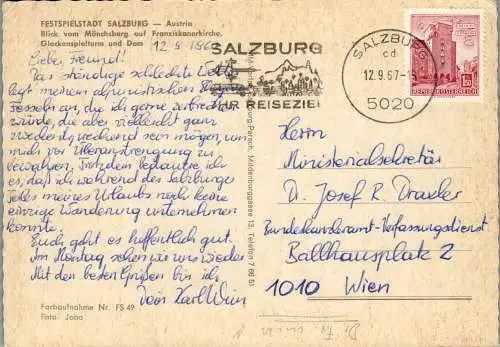 FESTSPIELSTADT SALZBURG — Austria
Blick vom Mönchsberg auf Franziskanerkirche,
Glockenspielturm und Dom
12 9 1967
Lieber Freund!
Das ständige schlechte Wetter
legt meinem alpinistischen
Fesseln an, die ich gerne zerbrechen
würde, die aber vielleicht ganz
zweckentsprechend sein mögen, um
mich vor Überanstrengung zu
bewahren. Trotzdem bedaure ich
es, daß ich während des Salzburger
Teiles meines Urlaubs noch keine
einzige Wanderung unternehmen
konnte.
Euch geht es hoffentlich gut.
Am Montag sehen wir uns wieder.
Mit den besten Grüßen bin ich
Dein Karl
Farbaufnahme Nr. FS 49
Foto: Jobo
SALZBURG
IHR REISEZIEL
SALZBURG
cd
12.9.67-15
5020
REPUBLIK ÖSTERREICH
Salzburg-Parsch, Mildenburggasse 13, Telefon 7 66 51
Herrn
Ministerialsekretär
Dr. Josef R. Draxler
Bundeskanzleramt-Verfassungsdienst
Ballhausplatz 2
1010 Wien